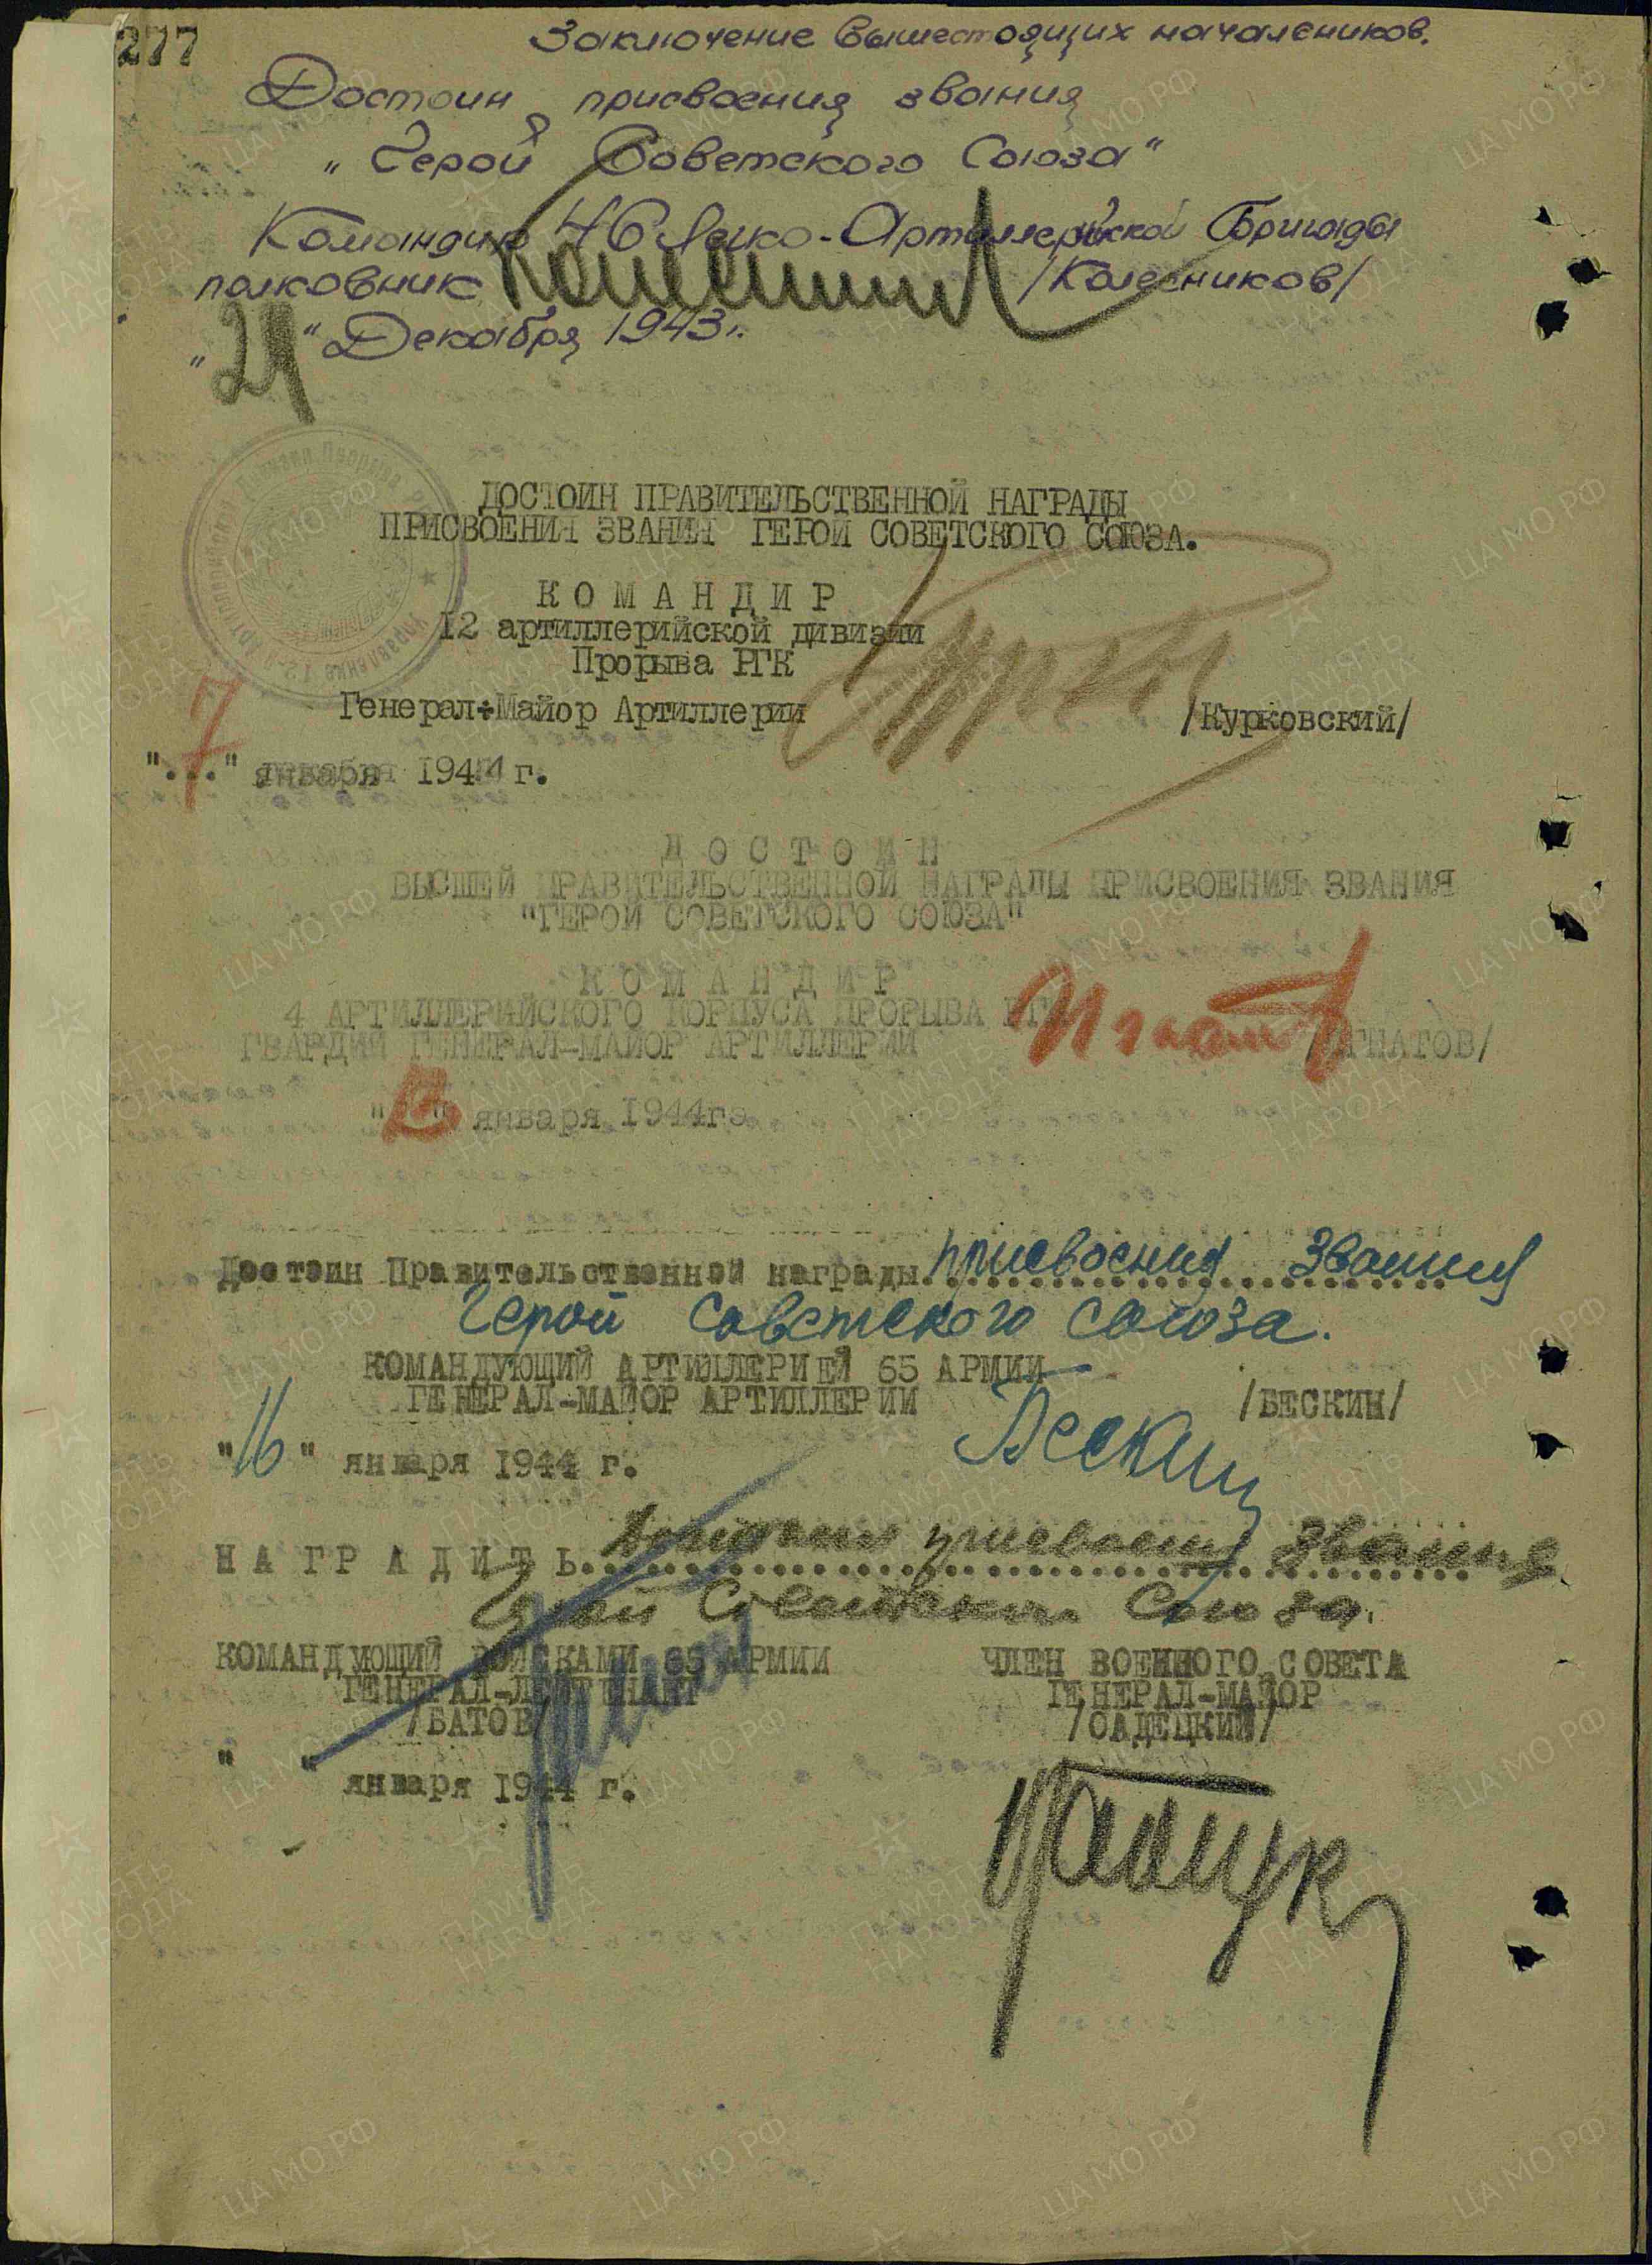 277
Заключение вышестоящих начальников.
Достоин присвоения звания
"Герой Советского Союза"
Командир 46 Легко-Артиллерийской Бригады
полковник /Колесников/
"29" Декабря 1943г.
ДОСТОИН ПРАВИТЕЛЬСТВЕННОЙ НАГРАДЫ
ПРИСВОЕНИЯ ЗВАНИЯ ГЕРОЙ СОВЕТСКОГО СОЮЗА.
КОМАНДИР
12 артиллерийской дивизии
Прорыва РГК
Генерал-Майор Артиллерии /Курковский/
"7" января 1944 г.
ДОСТОИН
ВЫСШЕЙ ПРАВИТЕЛЬСТВЕННОЙ НАГРАДЫ ПРИСВОЕНИЯ ЗВАНИЯ
"ГЕРОЙ СОВЕТСКОГО СОЮЗА"
КОМАНДИР
4 АРТИЛЛЕРИЙСКОГО КОРПУСА ПРОРЫВА РГК
ГВАРДИИ ГЕНЕРАЛ-МАЙОР АРТИЛЛЕРИИ Игнатов /ИГНАТОВ/
января 1944г.
Достоин Правительственной награды присвоения звания
Герой Советского Союза.
КОМАНДУЮЩИЙ АРТИЛЛЕРИЕЙ 65 АРМИИ
ГЕНЕРАЛ-МАЙОР АРТИЛЛЕРИИ Бескин /БЕСКИН/
"16" января 1944 г.
НАГРАДИТЬ Достоин присвоения звания
Герой Советского Союза.
КОМАНДУЮЩИЙ ВОЙСКАМИ 65 АРМИИ ЧЛЕН ВОЕННОГО СОВЕТА
ГЕНЕРАЛ-ЛЕЙТЕНАНТ ГЕНЕРАЛ-МАЙОР
/БАТОВ/ /РАДЕЦКИЙ/
" " января 1944 г.